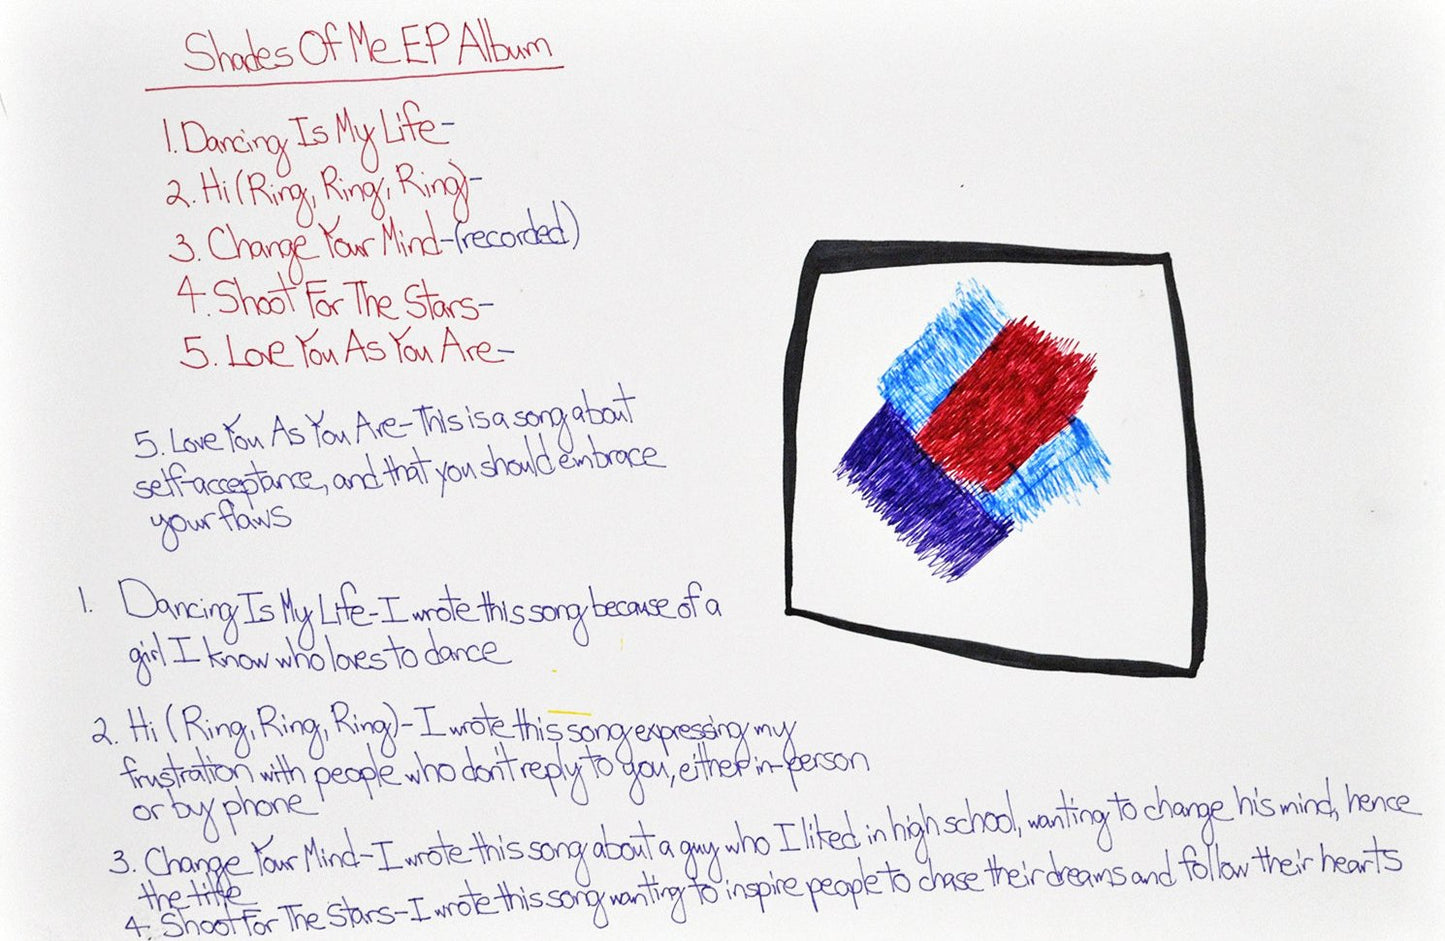 Shades Of Me EP Album
1. Dancing Is My Life-
2. Hi (Ring, Ring, Ring)-
3. Change Your Mind-(recorded)
4. Shoot For The Stars-
5. Love You As You Are-
5. Love You As You Are-This is a song about
self-acceptance, and that you should embrace
your flaws
1. Dancing Is My Life-I wrote this song because of a
girl I know who loves to dance
2. Hi (Ring, Ring, Ring)-I wrote this song expressing my
frustration with people who don't reply to you, either in-person
or by phone
3. Change Your Mind-I wrote this song about a guy who I liked in high school, wanting to change his mind, hence
the title
4. Shoot For The Stars-I wrote this song wanting to inspire people to chase their dreams and follow their hearts